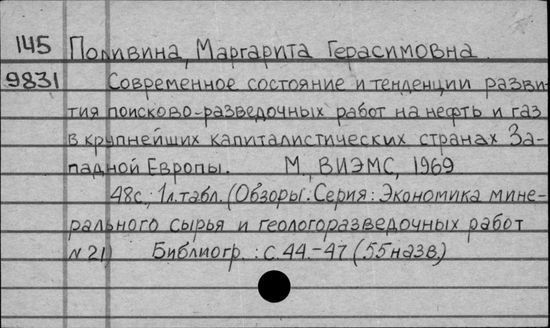 145 Поливина, Маргарита Герасимовна.
9831 Современное состояние и тенденции разви-
тия поисково-разведочных работ на нефть и газ
в крупнейших капиталистических странах За-
падной Европы. М., ВИЭМС, 1969
48с., 1л.табл. (Обзоры. Серия: Экономика мине-
рального сырья и геологоразведочных работ
№ 21) Библиогр.: с. 44.-47 (55 назв.)